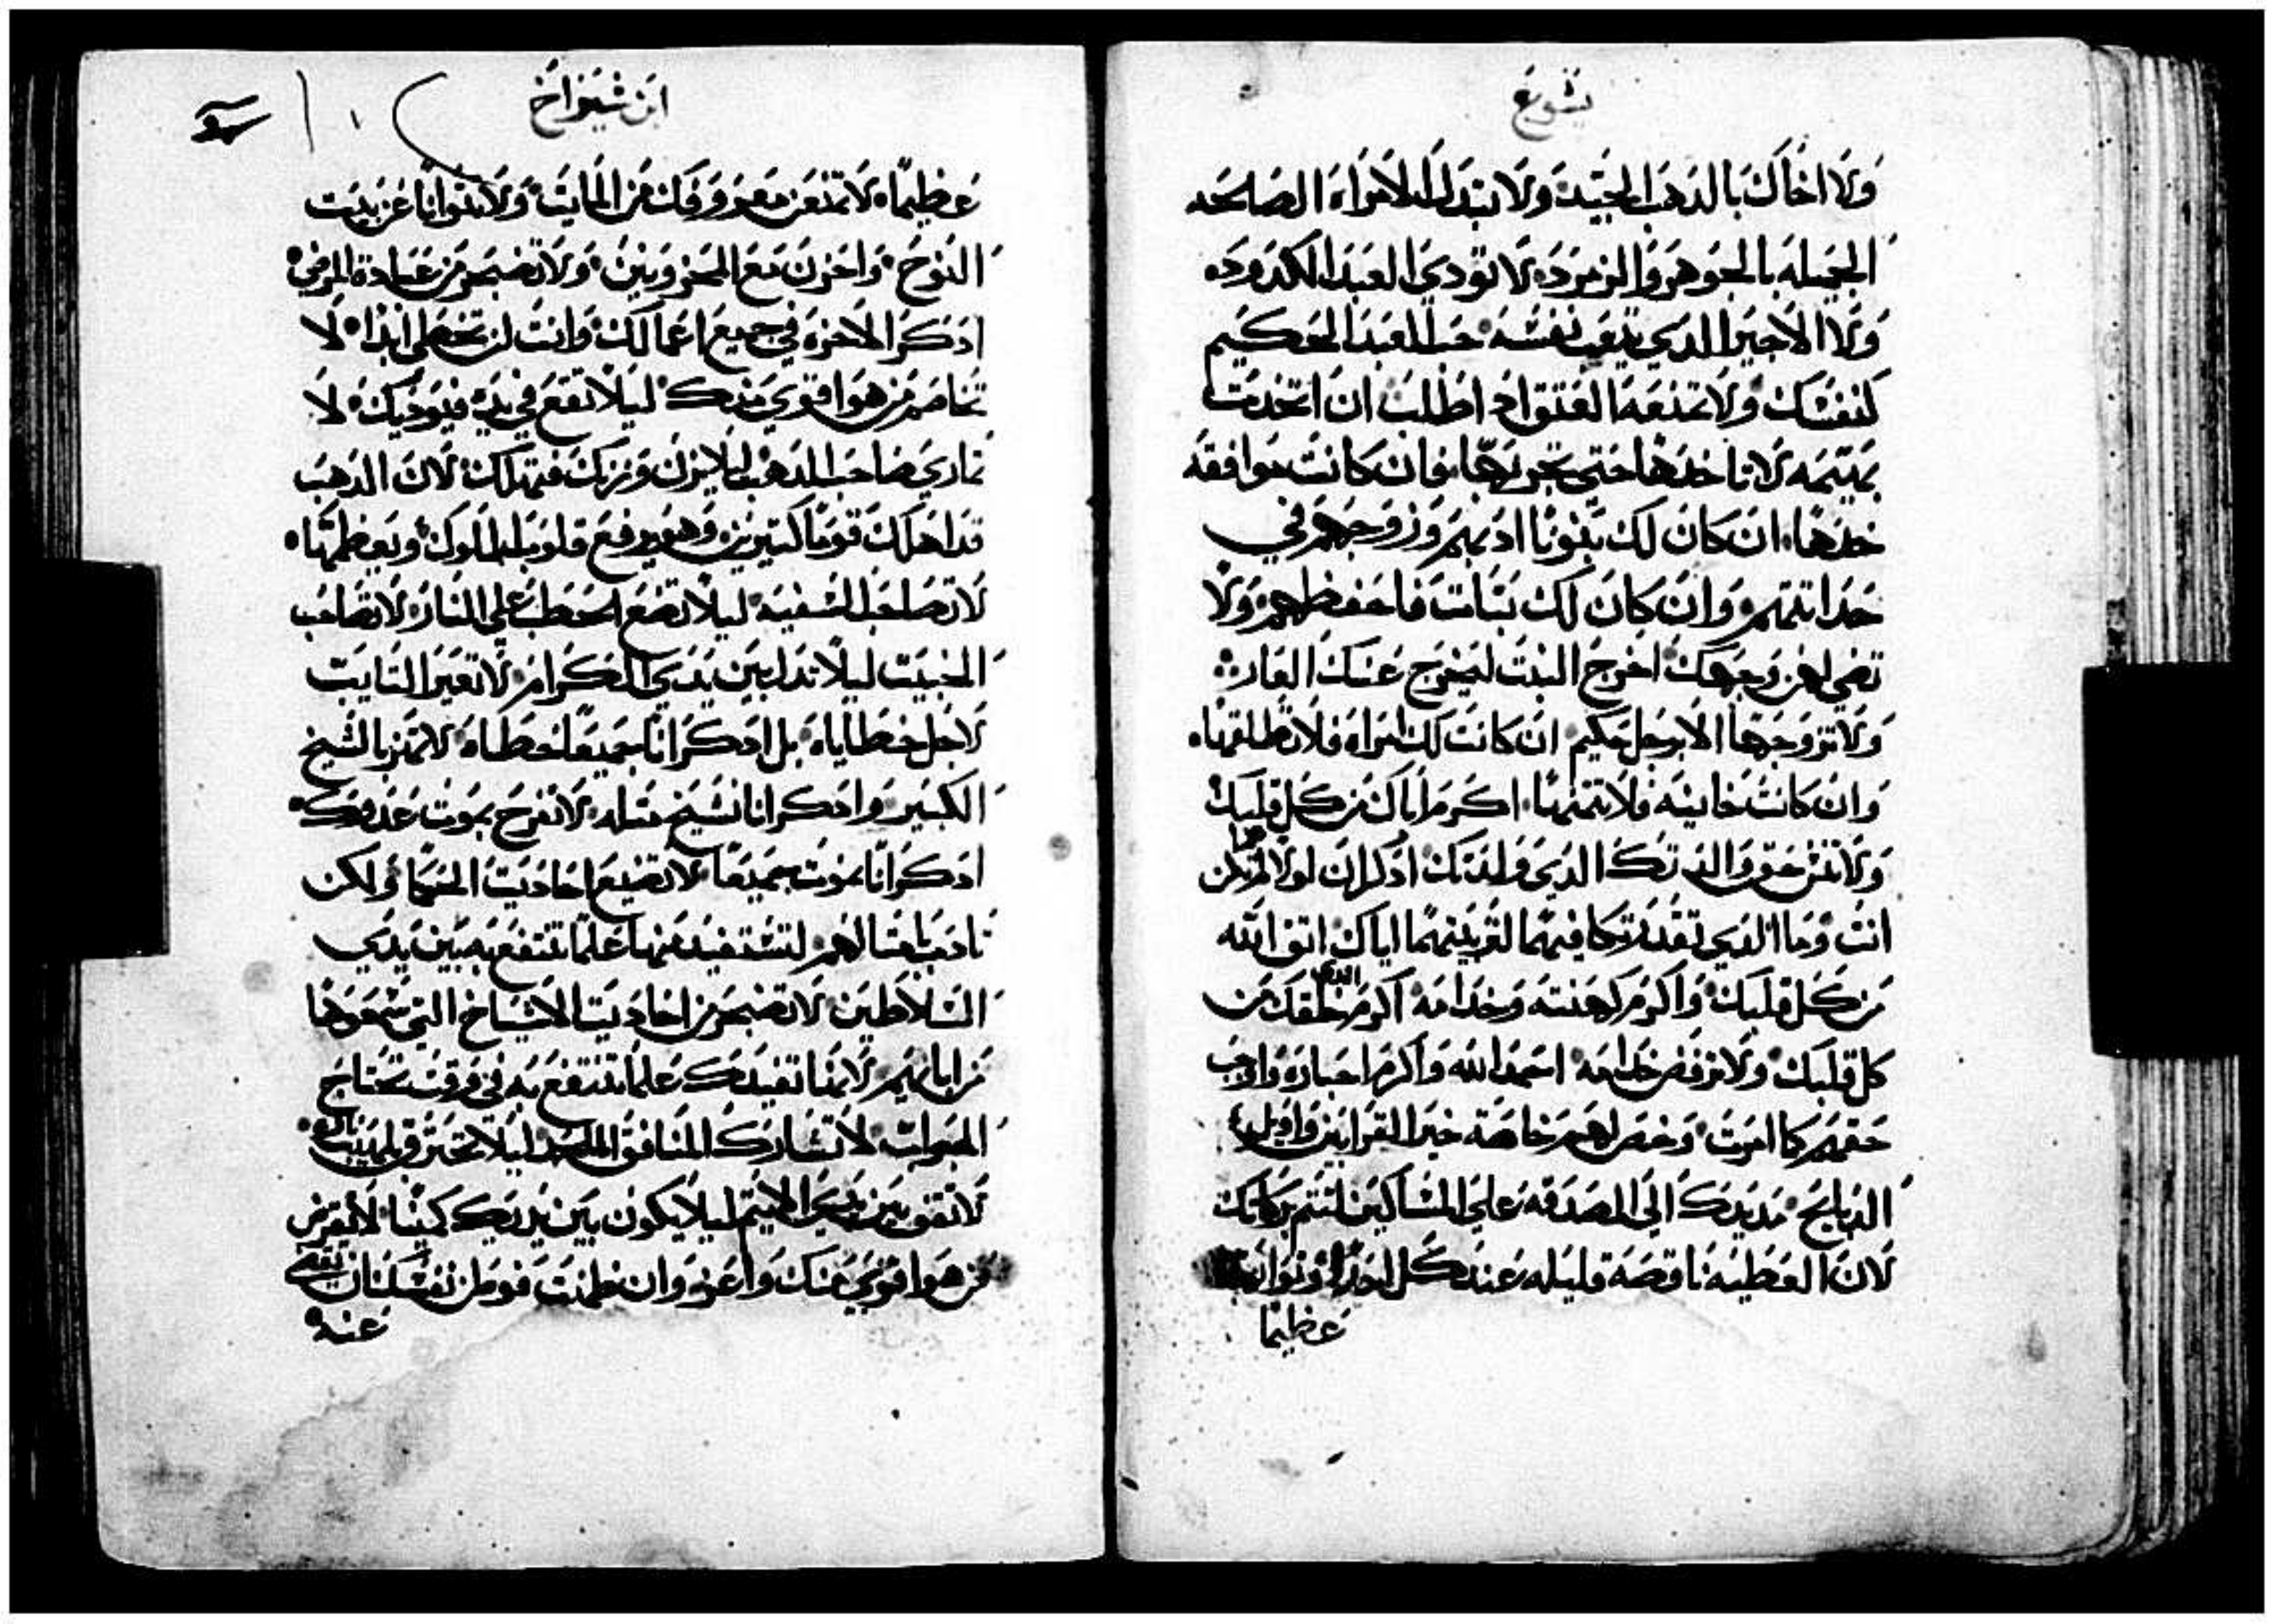 يشوع
ولا اخاك بالدهب الجيد ولا تبدل الامراه الصالحه
الجميله بالجوهر والزمرد لا تودي العبد الكدود
ولا الاجير الدي يتعب نفسه حب العبد الحكيم
كنفسك ولا تمنعه العتق اطلب ان اتخدت
بهيمه لا تاخدها حتى تجربها فان كانت موافقه
خدها ان كان لك بنونا ادبهم وزوجهم في
حداثتهم وان كان لك بنات فاحفظهم ولا
تضي لهن وجهك اخرج البنت ليخرج عنك العار
ولا تزوجها الا برجل حكيم ان كانت لك امراه فلا تطلقها
وان كانت خاينه فلا تمنها اكرم اباك من كل قلبك
ولا تنس حق والدتك الدي ولدتك ادكر ان لولا هما لم تكن
انت وما الدي تقدر تكافيهما لتربيتهما اياك اتق الله
من كل قلبك واكرم كهنته وخدامه اكرم الدي خلقك من
كل قلبك ولا ترفض خدامه احمد الله واكرم احباره واوجب
حقهم كما امرت وخص لهم خاصة خير القرابين واوايل
الدبايح مد يدك الى الصدقه على المساكين لتتم بركاتك
لان العطيه ناقصة قليله عند كل احد
عظيما
ابن شيراخ
عظيما لا تمنعن معروفك من المايت ولا تتوانا عن بيت
النوح واحزن مع المحزونين ولا تضجر من عيادة المرضي
ادكر الاخرة في جميع اعمالك وانت لن تخطي ابدا لا
تخاصم من هو اقوي منك ليلا تقع في يديه فيوديك لا
تماري صاحب الدهب ليلا يزن وزنك فيهلك لان الدهب
قد اهلك قوما كتيرين وهو يرفع قلوب الملوك ويعظمها
لا تصاحب السفيه ليلا تضع الحطب علي النار لا تصاحب
الخبيت ليلا تدل بين يدي الكرام لا تعير التايب
لاجل خطاياه بل ادكر انا جميعا خطاه لا تهز بالشيخ
الكبير وادكر انا نشيخ متله لا تفرح بموت عدوك
ادكر انا نموت جميعا لا تضيع احاديت الحكما ولكن
تادب بامتالهم لتستفيد منها علما تنتفع به بين يدي
السلاطين لا تضجر من احاديت الاشياخ التي سمعوها
من ابايهم لانها تفيدك علما تنتفع به في وقت تحتاج
الجواب لا تشارك المنافق الملحد ليلا تحترق بلهيب ناره
لا تقف بين يدي الاتيم ليلا يكون بين يديك كمينا لا تقرض
من هو اقوي منك واعز وان ظننت فوطن نفسك ان
عنه